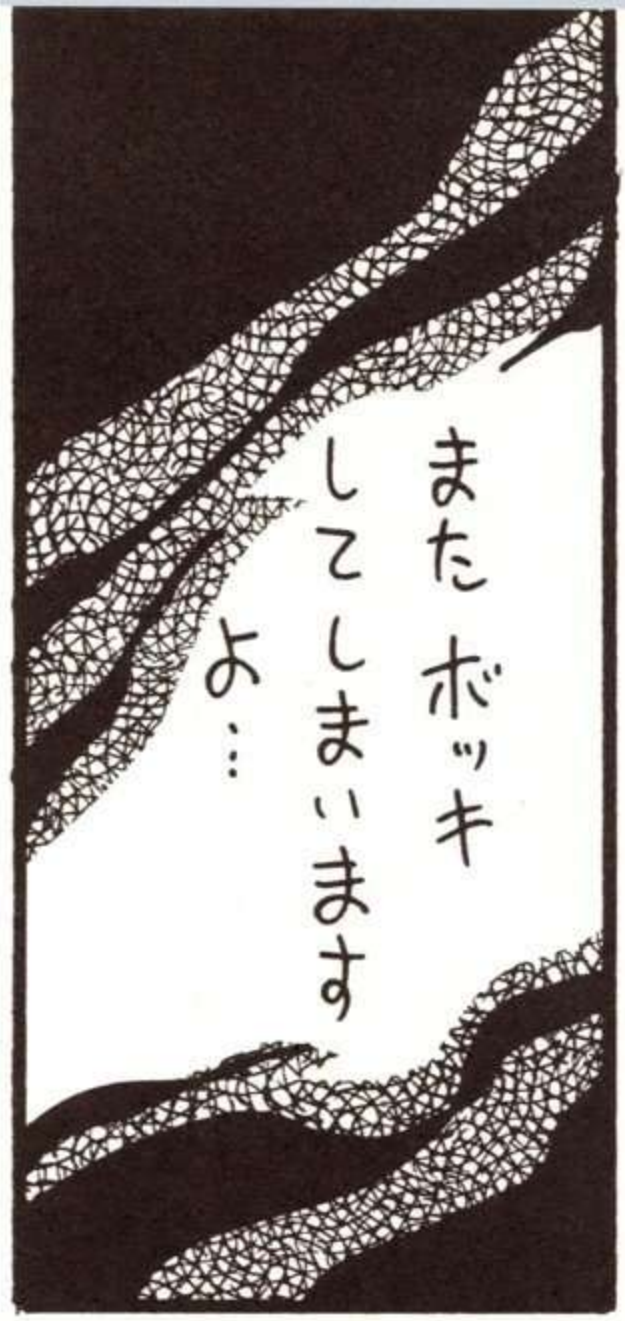 また ボッキ
してしまいます
よ…